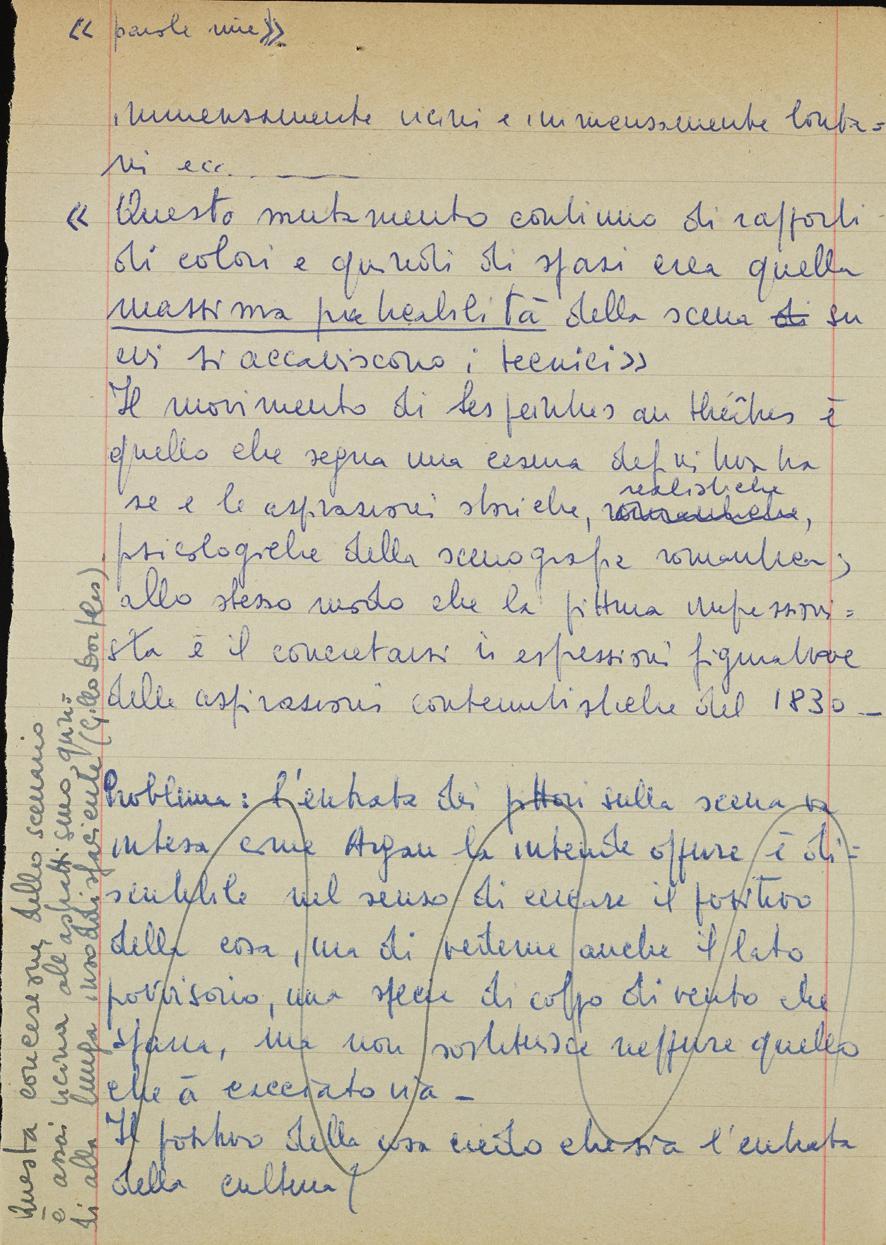 « parole mie»
immensamente vicini e immensamente lonta=
ni ecc. ___
« Questo mutamento continuo di rapporti
di colori e quindi di spazi crea quella
massima praticabilità della scena di su
cui si accaniscono i tecnici»
Il movimento di les peintres au théâtres è
quello che segna una cesura definitiva tra
se e le aspirazioni storiche, realistiche,
psicologiche della scenografia romantica;
allo stesso modo che la pittura impressioni=
sta è il concretarsi in espressioni figurative
delle aspirazioni contenutistiche del 1830_
Problema: l'entrata dei pittori sulla scena va
intesa come Argan la intende oppure è di=
scutibile nel senso di cercare il positivo
della cosa, ma di vederne anche il lato
provvisorio, una specie di colpo di vento che
spazza, ma non sostituisce neppure quello
che à cacciato via_
Il positivo della cosa credo che sia l'entrata
della cultura!
Questa concezione dello scenario
è assai vicina alle aspettissimo, quin=
di alla lunga insoddisfacente (Gillo Dorfles).